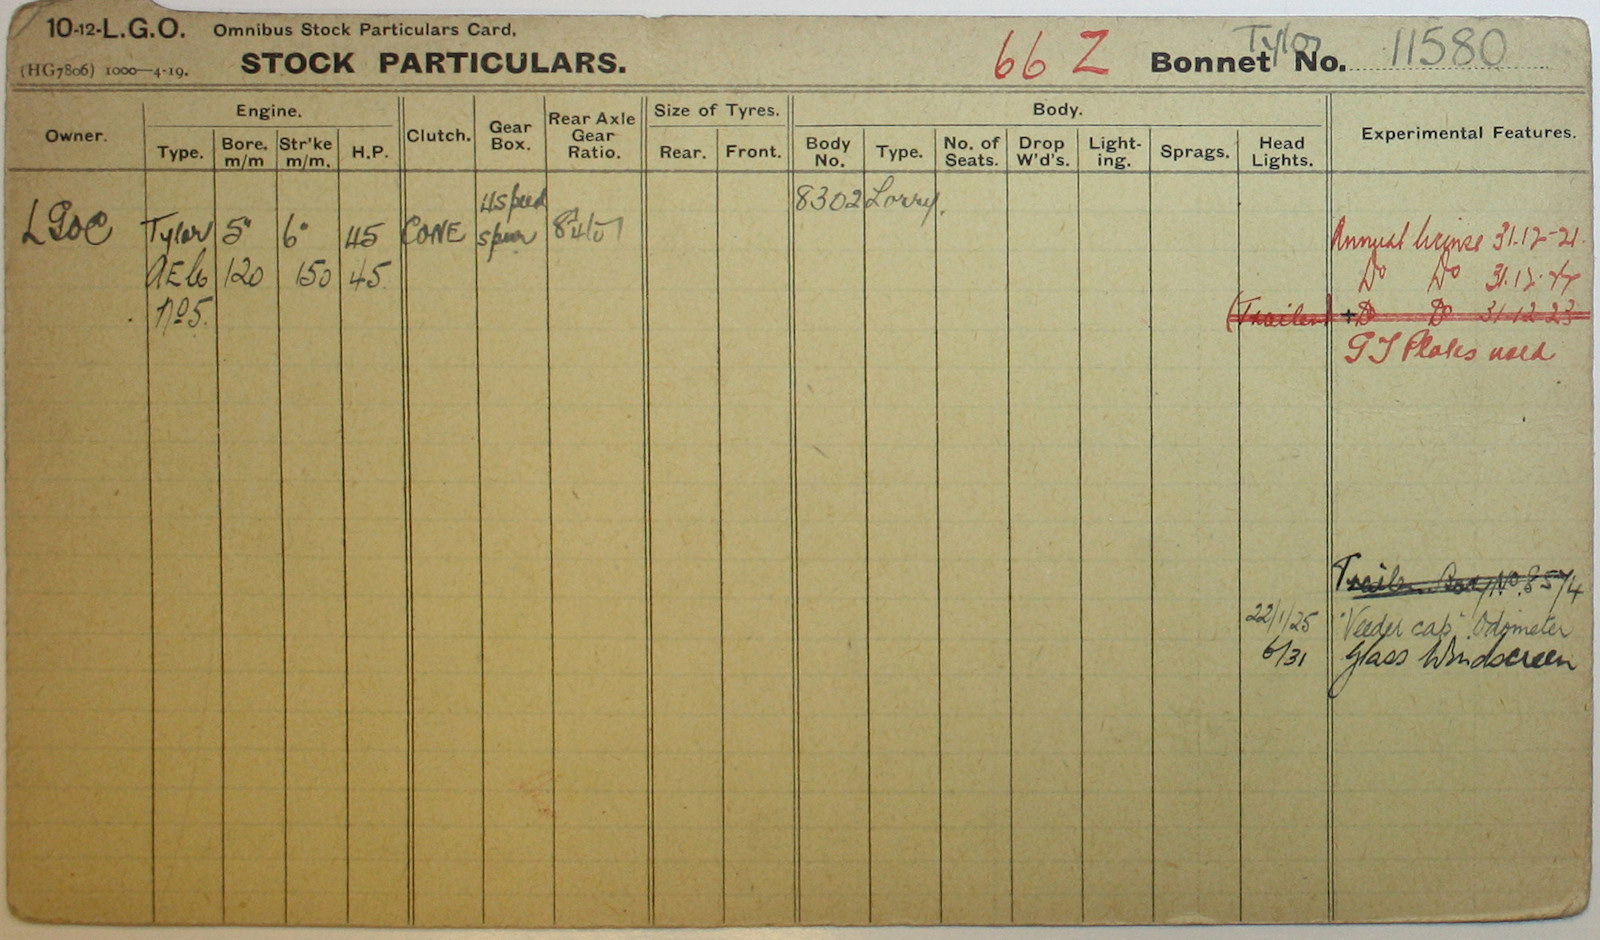 10-12-L.G.O. Omnibus Stock Particulars Card.
(HG7806) 1000—4-19. STOCK PARTICULARS. 66 Z Tylor Bonnet No. 11580
Owner. Engine. Clutch. Gear Box. Rear Axle Gear Ratio. Size of Tyres. Body. Experimental Features.
Type. Bore. m/m Str'ke m/m. H.P. Rear. Front. Body No. Type. No. of Seats. Drop W'd's. Light-ing. Sprags. Head Lights.
4 speed 8302 Lorry.
LGOC Tylor 5" 6" 45 CONE spur Annual license 31-12-21.
AEC 120 150 45 Do Do 31.12.
No 5. (Trailer) + Do Do 31-12-23
GT Plates used
Trailer Body No. 8574
22/1/25 "Veeder cap" Odometer
6/31 Glass Windscreen